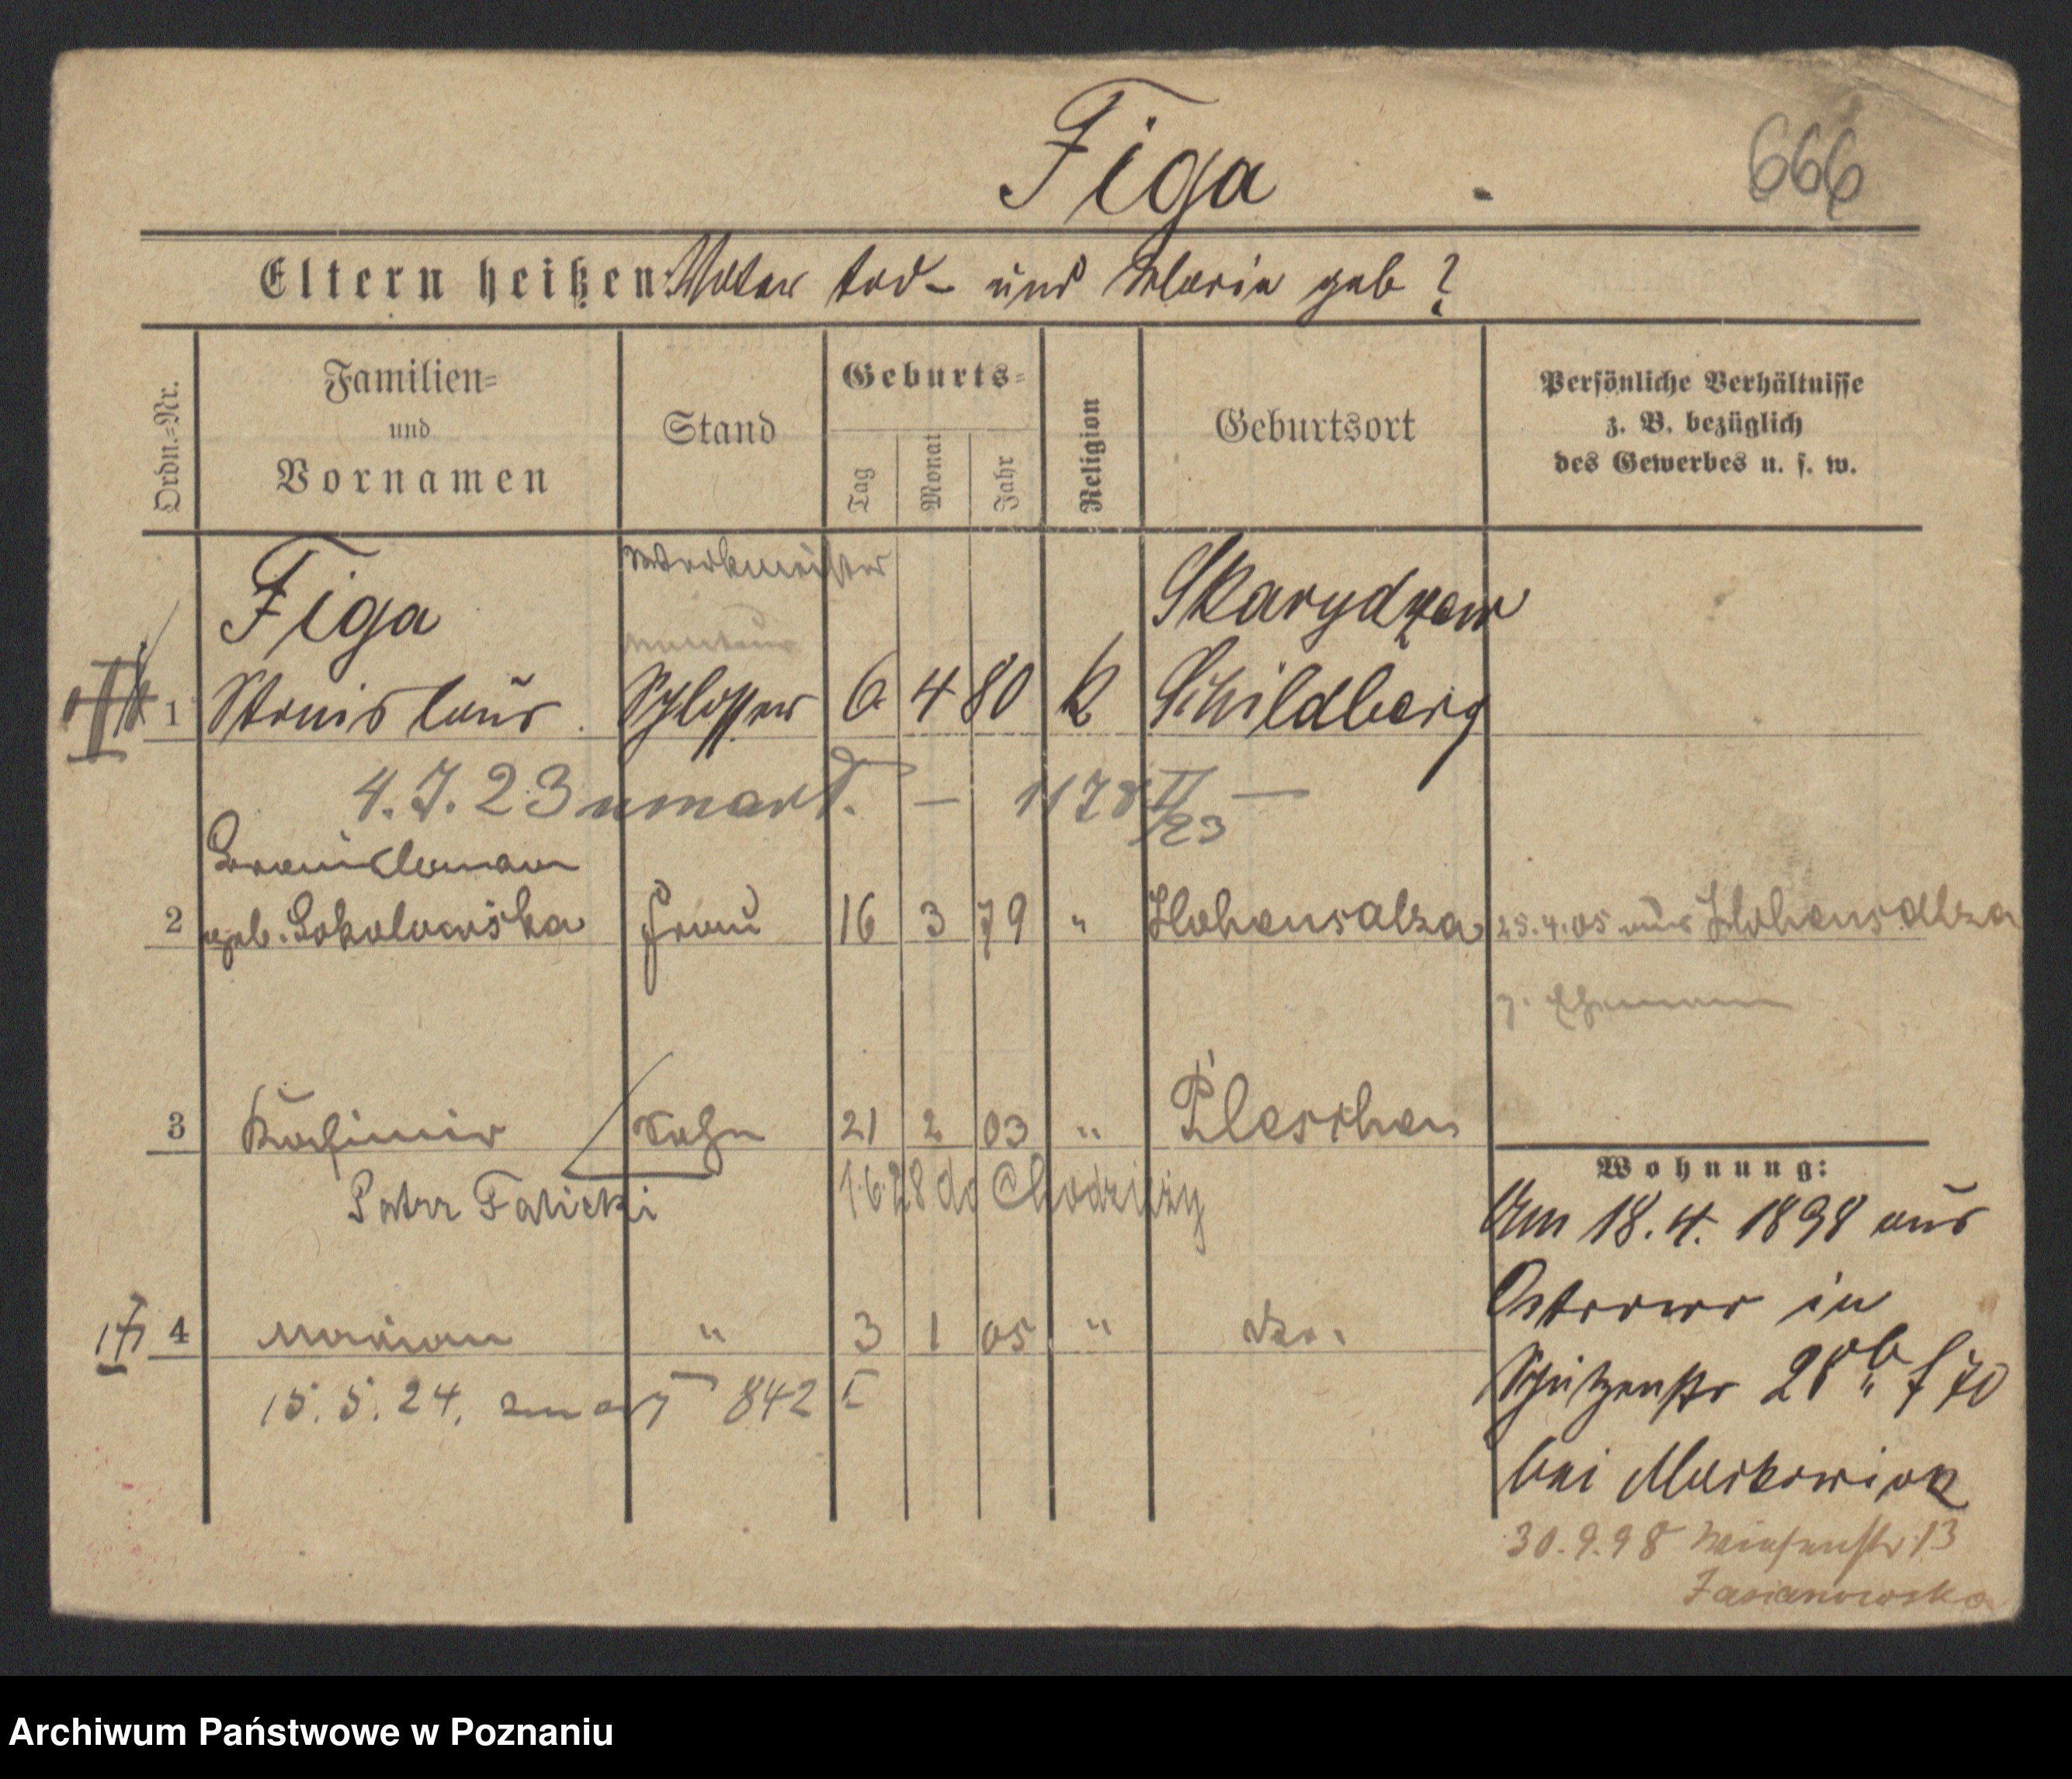 Figa
666
Eltern heißen: Vater tod - und Maria geb ?
Ordn.=Nr.
Familien=
und
Vornamen
Stand
Geburts=
Tag
Monat
Jahr
Religion
Geburtsort
Persönliche Verhältnisse
z. B. bezüglich
des Gewerbes u. s. w.
Werkmeister
Figa
Skarydzew
Monteur
1 Stanislaus Schlosser 6 4 80 K Schildberg
4.7.23 umarł. — 1178 II —
/23
2 geb. Sokolowska Frau 16 3 79 " Hohensalza 25.4.05 aus Hohensalza
z. Ehemann
3 Kasimir Sohn 21 2 03 " Pleschen
Wohnung:
Patrz Falicki 1.6.28 do Chodzieży
Am 18.4. 1898 aus
Ostrowo in
4 Marian " 3 1 05 " do.
Schützenstr 28b
15.5.24. zmarł 842 I
bei Markowiak
30.9.98 Wiesenstr 13